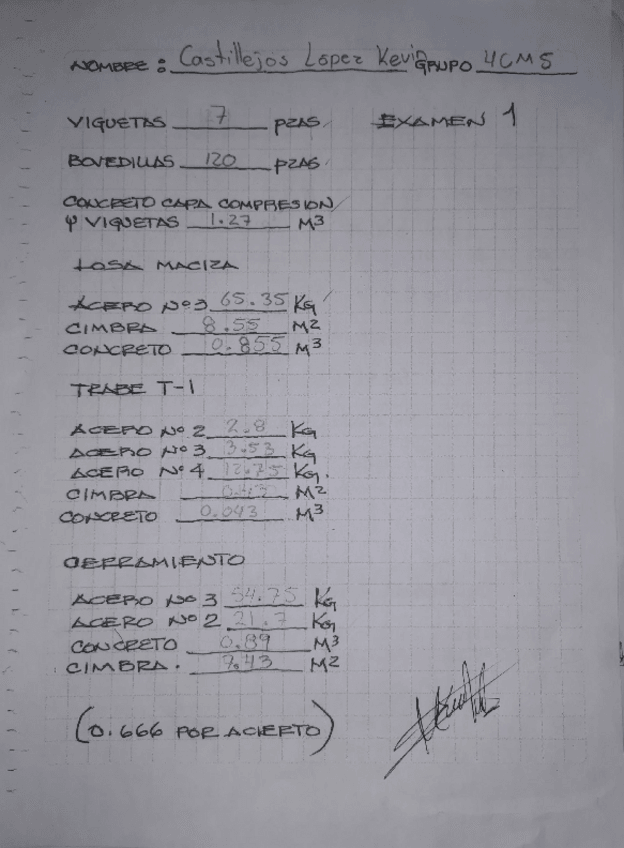 NOMBRE: Castillejos López Kevin GRUPO 4CM5
VIGUETAS 7 PZAS EXAMEN 1
BOVEDILLAS 120 PZAS
CONCRETO CAPA COMPRESION
Y VIGUETAS 1.27 M3
LOSA MACIZA
ACERO Nº3 65.35 KG
CIMBRA 8.55 M2
CONCRETO 0.855 M3
TRABE T-1
ACERO Nº 2 2.8 KG
ACERO Nº 3 3.53 KG
ACERO Nº 4 12.75 KG.
CIMBRA M2
CONCRETO 0.043 M3
CERRAMIENTO
ACERO Nº 3 54.75 KG
ACERO Nº 2 21.7 KG
CONCRETO 0.89 M3
CIMBRA. 7.43 M2
(0.666 POR ACIERTO)